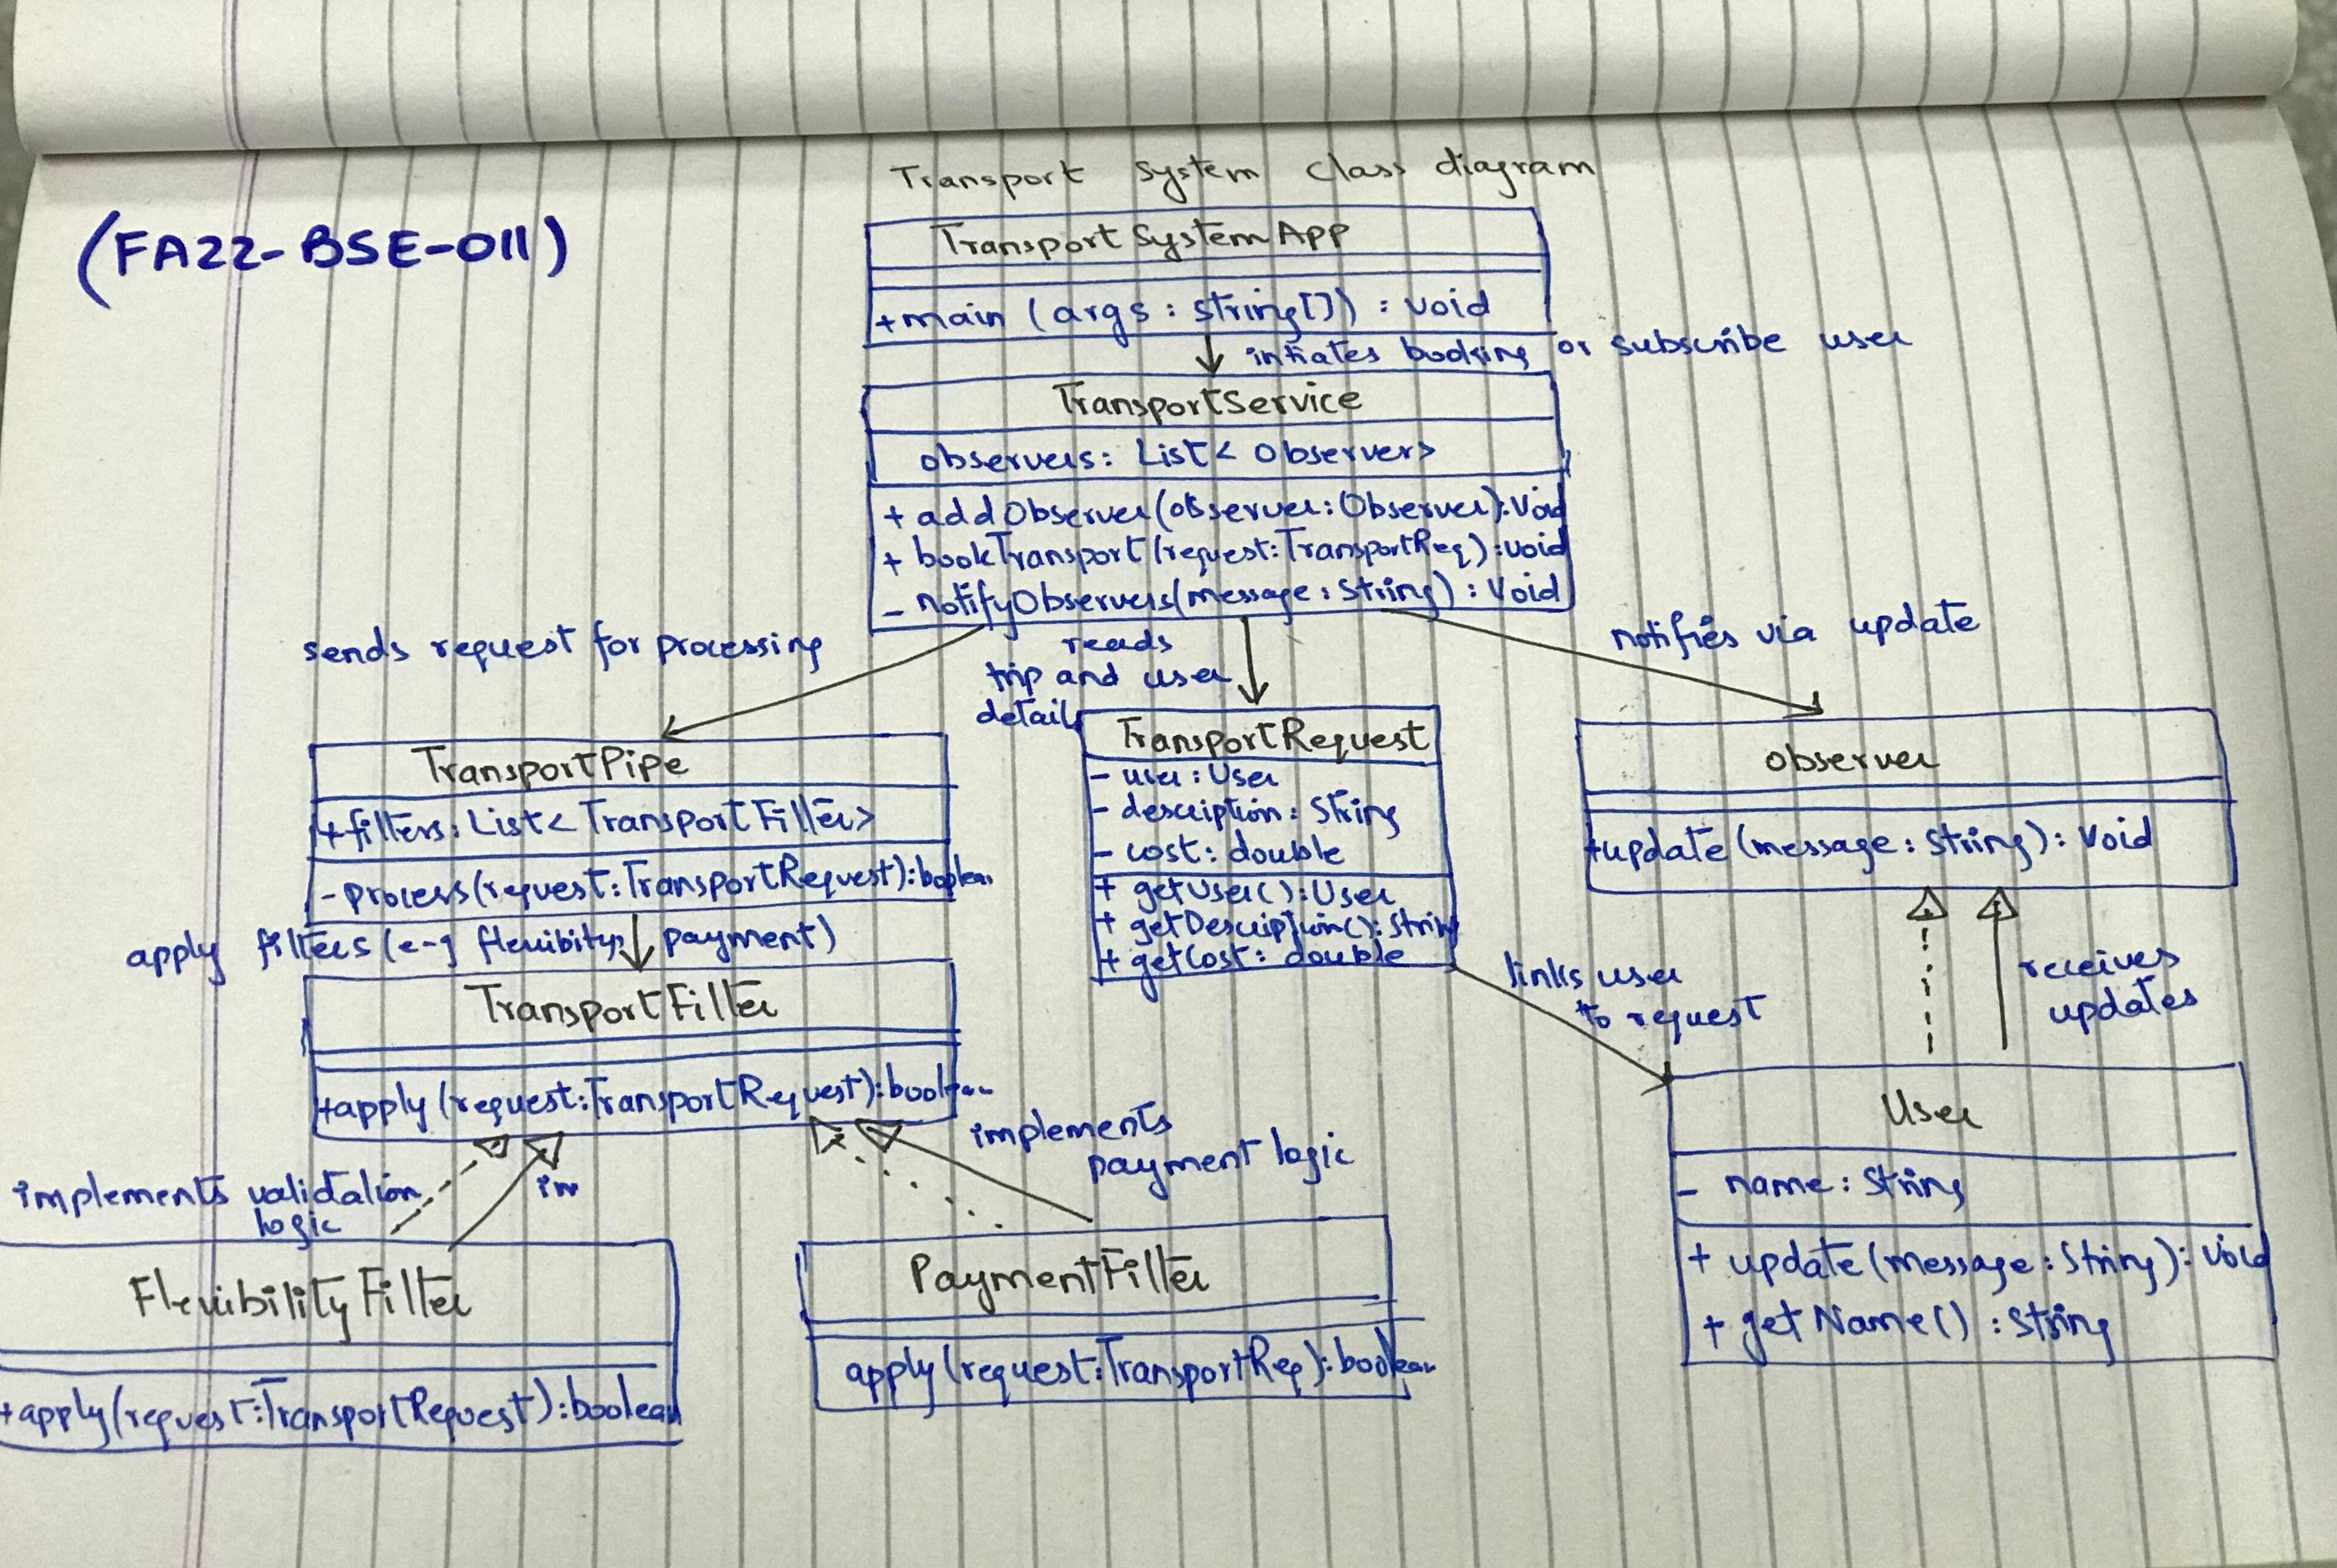 Transport System class diagram
(FA22-BSE-011)
TransportSystemApp
+main (args : string[]) : void
intiates booking or subscribe user
TransportService
observers: List< Observer>
+ addObserver(observer:Observer):Void
+ bookTransport(request:TransportReq):void
- notifyObservers(message: String) : Void
sends request for processing
reads
trip and user
details
notifies via update
TransportPipe
+filters: List< TransportFilter>
-process(request:TransportRequest):boolean
apply filters (e-g flexibity, payment)
TransportRequest
- user : User
- description: String
- cost: double
+ getUser():User
+ getDescription():String
+ getCost: double
observer
+update(message: String): Void
receives
updates
links user
to request
TransportFilter
+apply(request:TransportRequest):boolean
implements validation
logic
im
implements
payment logic
User
- name: String
+ update(message: String): Void
+ getName() : String
FlexibilityFilter
+apply(request:TransportRequest):boolean
PaymentFilter
apply(request:TransportReq):boolean